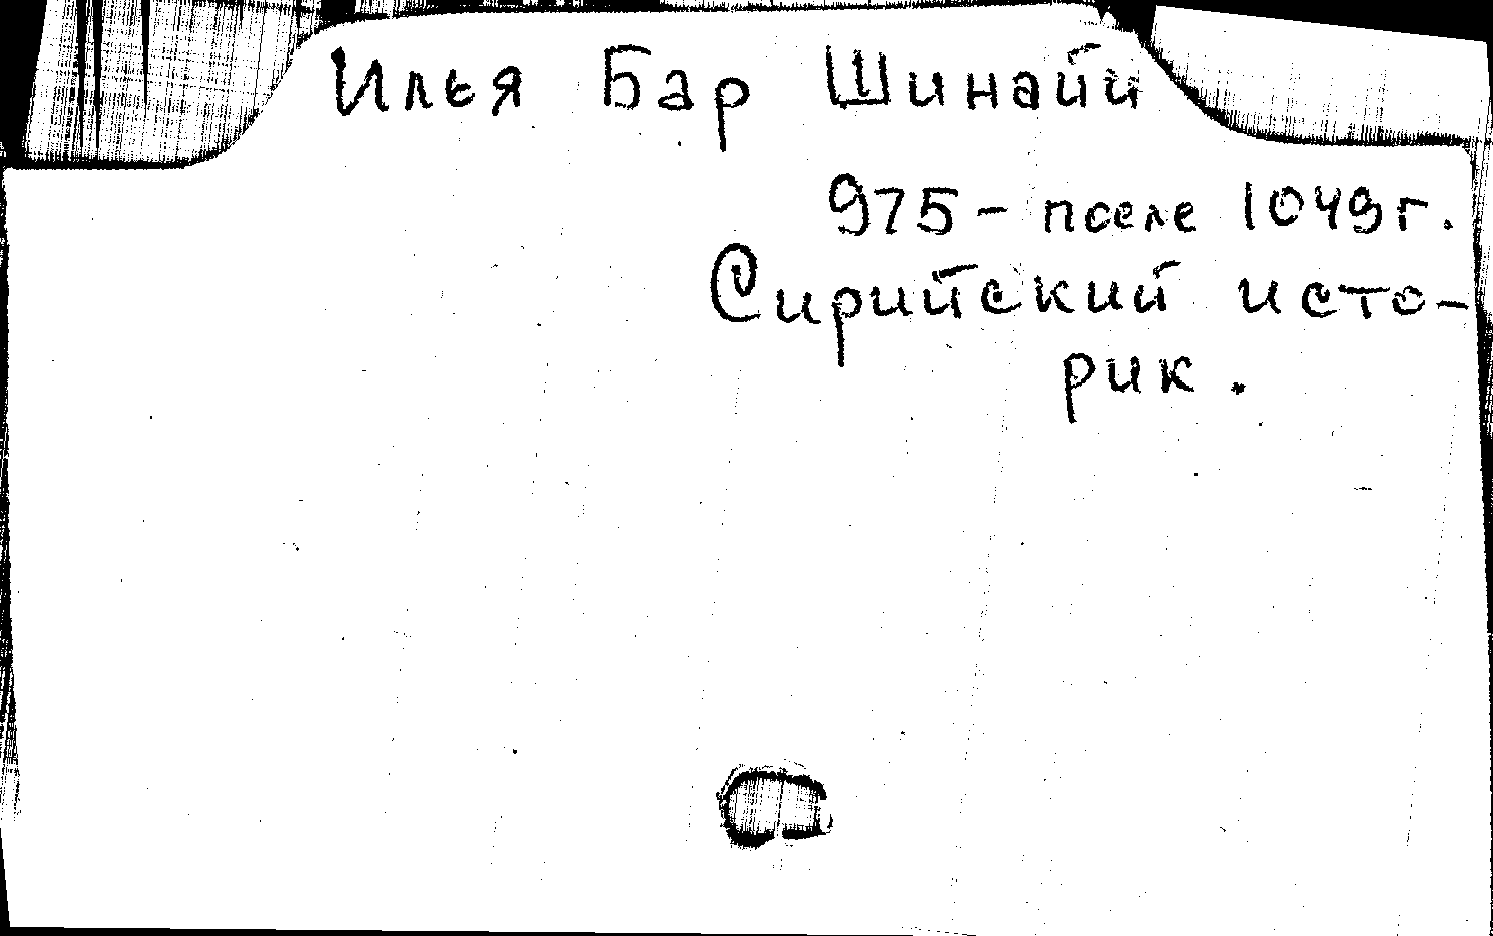 Илья Бар Шинайи
975 - после 1049 г.
Сирийский исто-
рик.